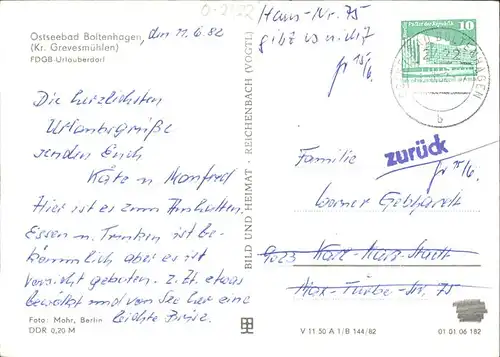 Ostseebad Boltenhagen, den 11.6.82
(Kr. Grevesmühlen)
FDGB-Urlauberdorf
Die herzlichsten
Urlaubsgrüße
senden Euch
Käte u Manfred
Hier ist es zum Aushalten.
Essen u. Trinken ist be-
kömmlich aber es ist
Vorsicht geboten. z. Zt. etwas
bewölkt und von See her eine
leichte Brise.
Foto: Mohr, Berlin
DDR 0,20 M
BILD UND HEIMAT · REICHENBACH (VOGTL)
Haus-Nr. 75
gibt es nicht
15/6.
10
BOLTENHAGEN
b
zurück
15/6.
Familie
Werner Gebhardt
9023 Karl-Marx-Stadt
Str. 75
V 11 50 A 1/B 144/82
01 01 06 182